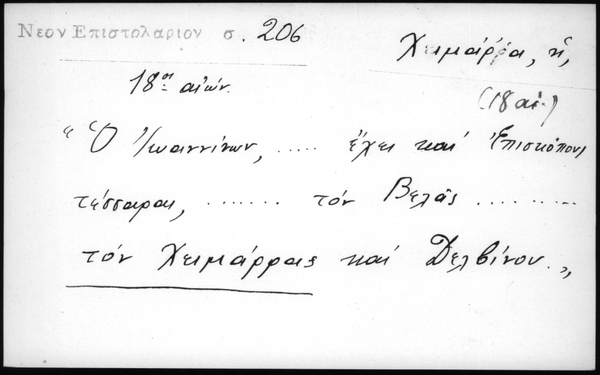 Νεον Επιστολαριον σ. 206
Χειμάρρα, ἡ,
18ος αἰών.
(18 αἰ.)
"Ὁ Ἰωαννίνων, ..... ἔχει καί Ἐπισκόπους
τέσσαρας, ....... τόν Βελᾶς .........
τόν Χειμάρρας καί Δελβίνου.„